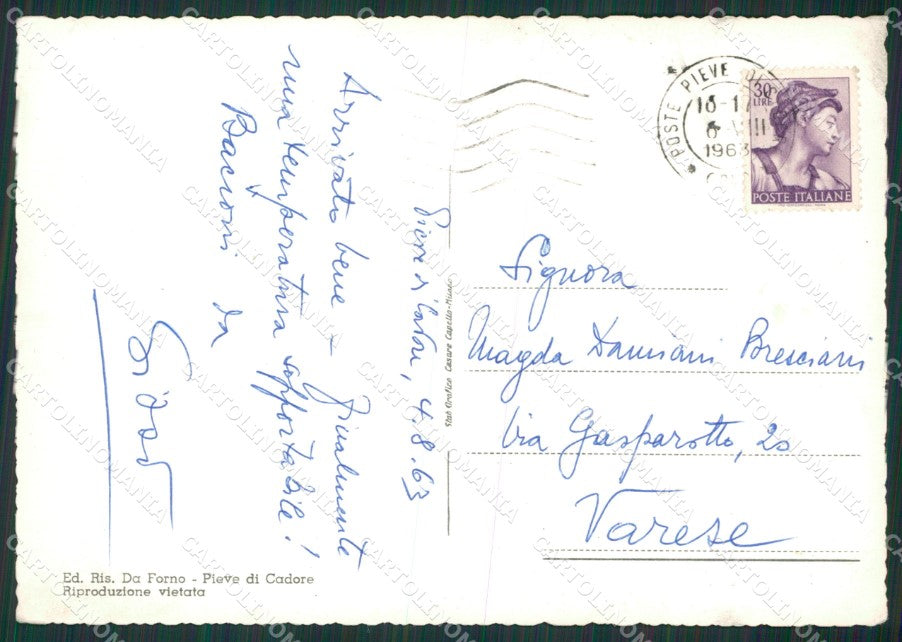 Pieve di Cadore, 4.8.63
Arrivato bene - Finalmente
una temperatura sopportabile!
Bacioni da
POSTE PIEVE DI
16-17
6 VIII
1963
30
LIRE
POSTE ITALIANE
Signora
Magda Damiani Bresciani
Via Gasparotto, 20
Varese
Stab. Grafico Cesare Capello-Milano
Ed. Ris. Da Forno - Pieve di Cadore
Riproduzione vietata
CARTOLINOMANIA